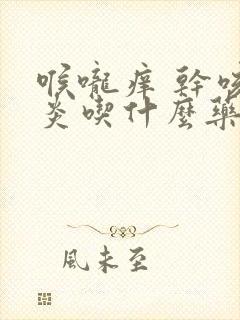 喉嚨痒 幹咳
炎喫什麼藥
風未至